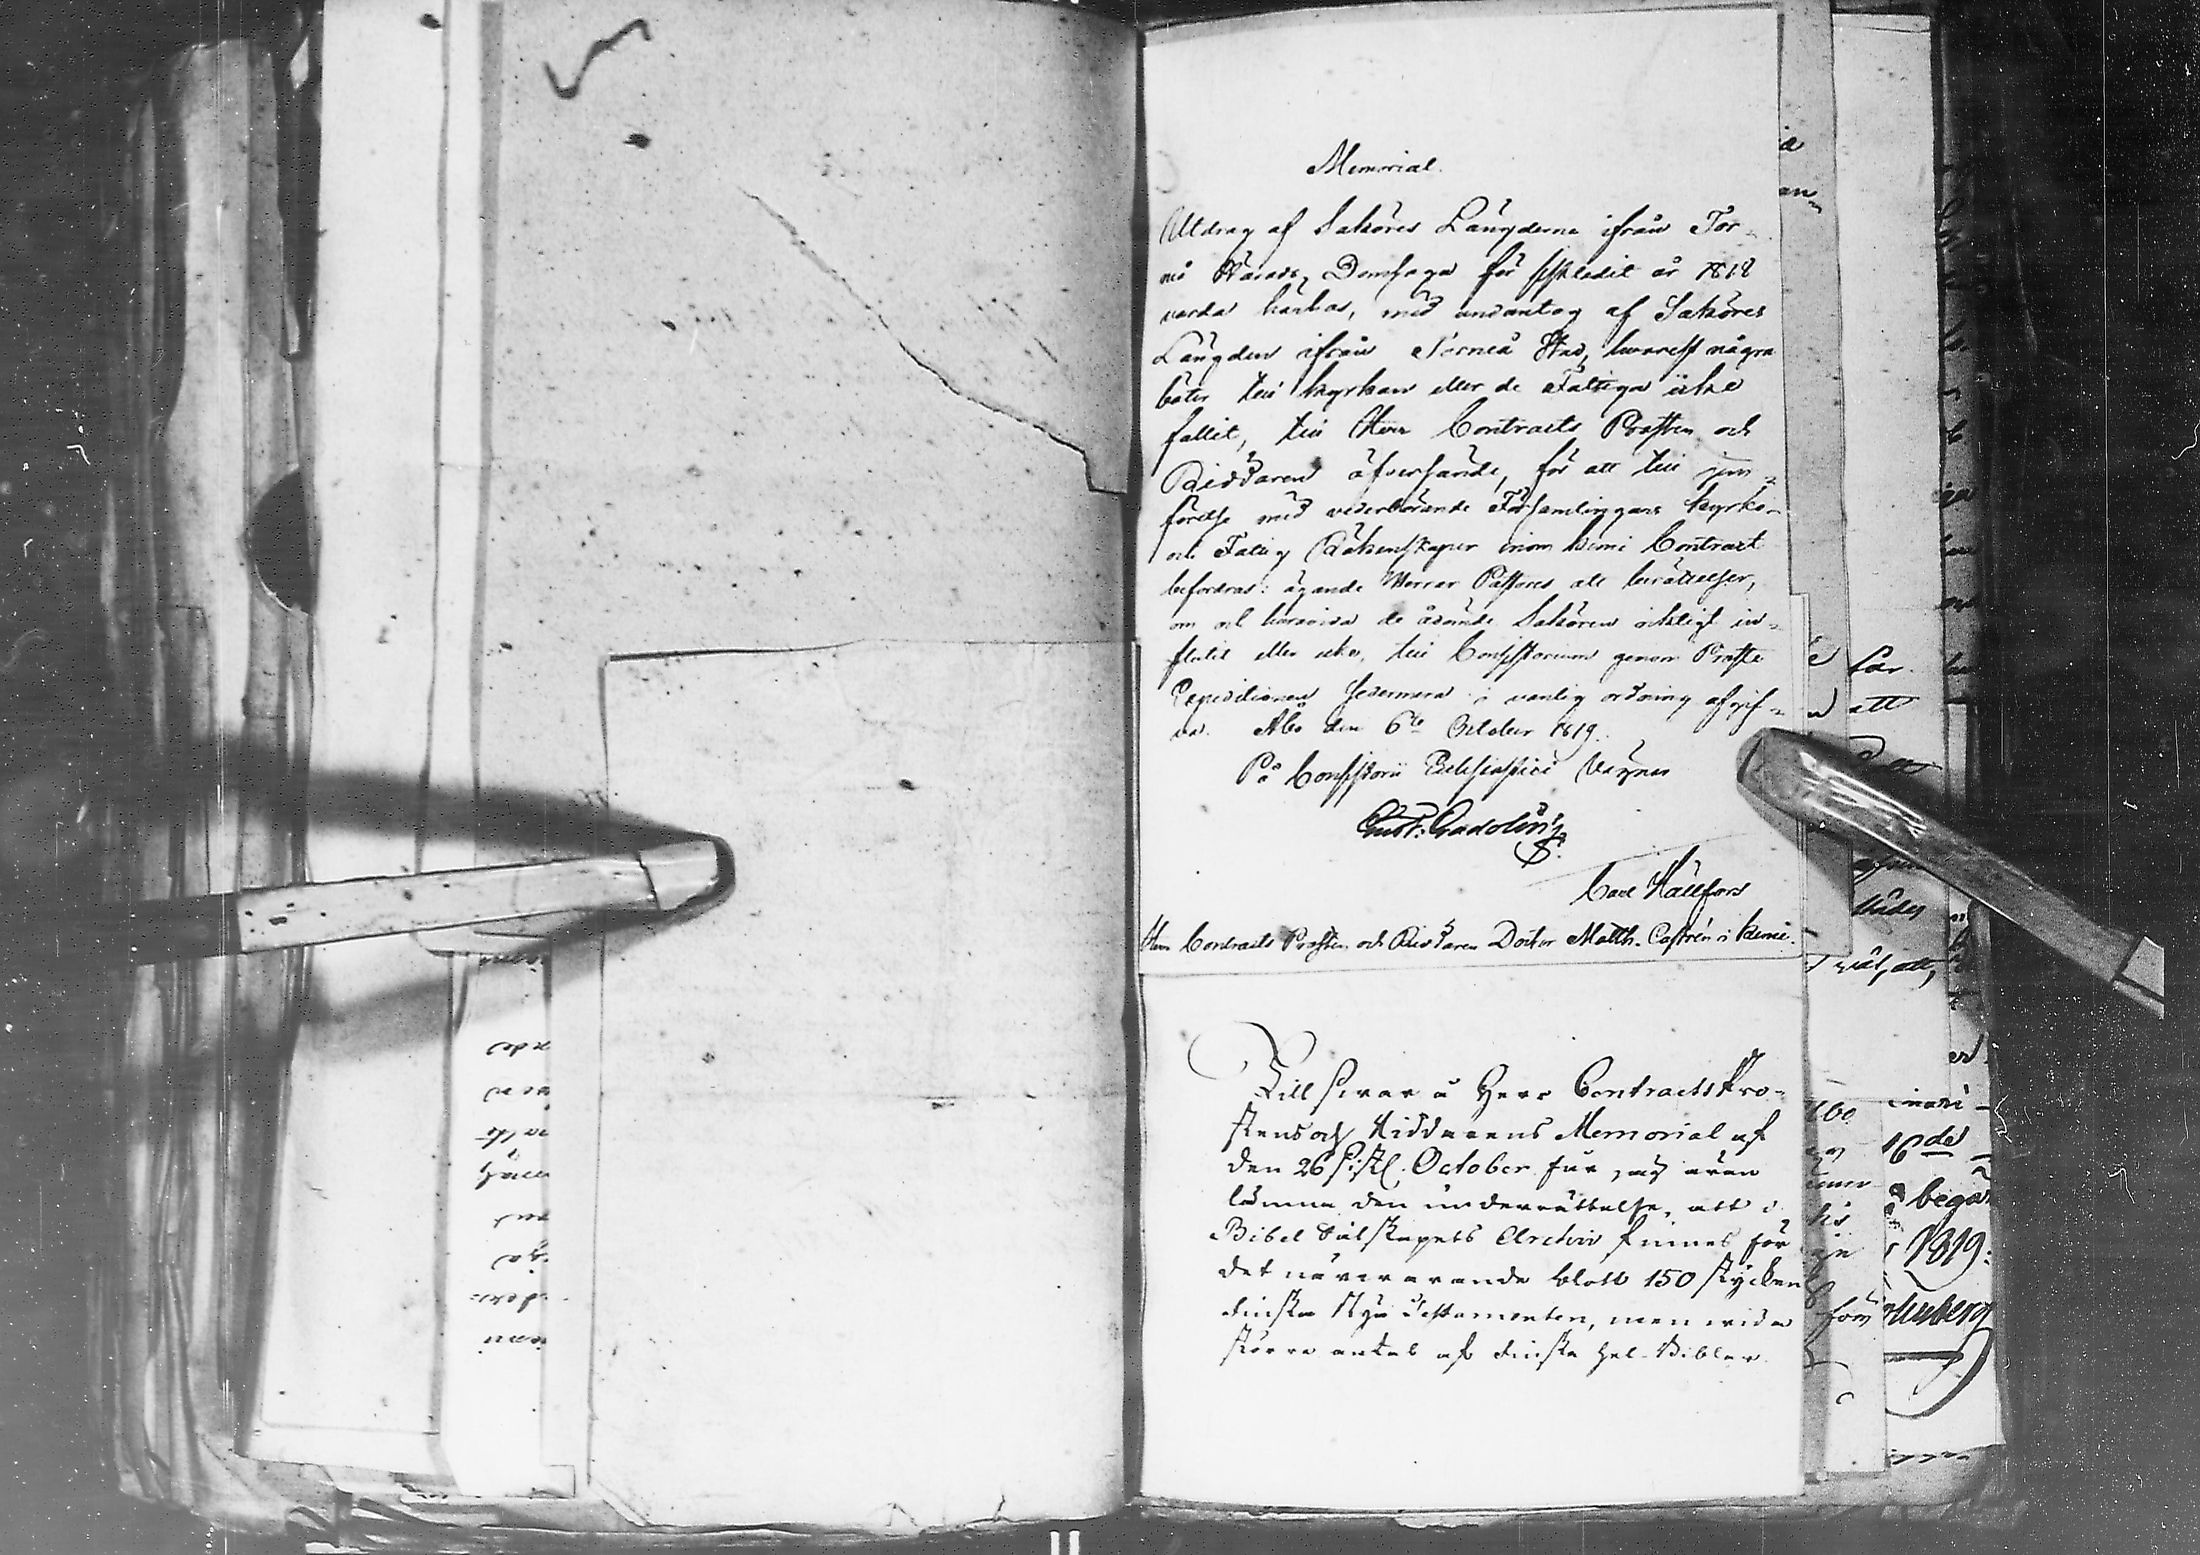 Memorial.
Utdrag af Saköres Längderne ifrån Tor-
neå Härads Domsaga för sistledit år 1818
varda härhos, med undantag af Saköres
Längden ifrån Torneå Stad, hvarest några
böter till kyrkan eller de Fattiga icke
fallit, till Herr Contracts Prosten och
Riddaren öfversände, för att till jem-
förelse med vederbörande Församlingars kyrko-
och Fattig Räkenskaper inom Kemi Contract
befordras: ägande Herrar Pastores att berättelser,
om och huruvida de ådömde Sakören richtigt in-
flutit eller icke, till Consistorium genom Prosts
Expeditionen sedermera i vanlig ordning afgif-
va. Åbo den 6te October 1819.
På Consistorii Ecclesiastici Vägnar
Gust: Gadolin
Carl Hällfors
Herr Contracts Prosten och Riddaren Doctor Matth. Castrén i Kemi.
Till svar å Herr Contracts Pro-
stens och Riddarens Memorial af
den 26 sistl. October får jag äran
lämna den underrättelse, att i
Bibel Sälskapets Archiv finnes för
det närvarande blott 150 stycken
Finska Nya Testamenten, men
större antal af Finska hel Bibler.
för
att
väl, att,
16de
begär
1819: